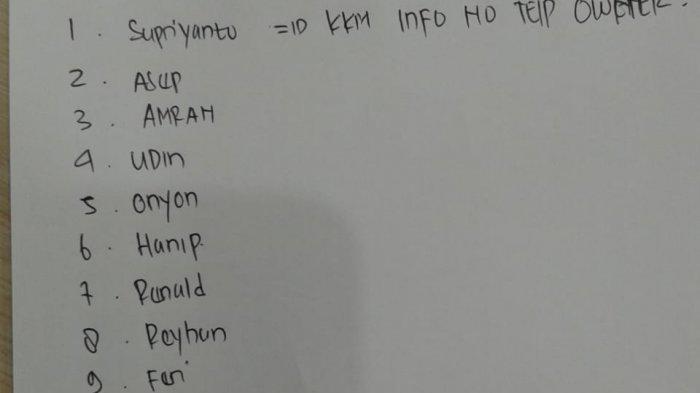 1. Supriyanto => KKM INFO NO TELP
2. ASUP
3. AMRAH
4. UDIN
5. Onyon
6. Hanip
7. Ronald
8. Reyhan
9. Feri